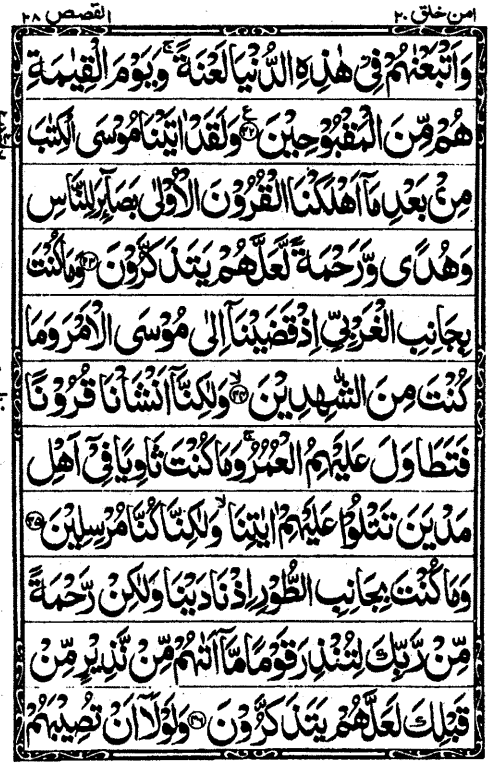 امن خلق ٢٠ القصص ٢٨
وَاَتْبَعْنٰهُمْ فِیْ هٰذِهِ الدُّنْیَا لَعْنَةً ۚ وَیَوْمَ الْقِیٰمَةِ
هُمْ مِّنَ الْمَقْبُوْحِیْنَ ﴿٤٢﴾ ع وَلَقَدْ اٰتَیْنَا مُوْسَی الْكِتٰبَ
مِنْۢ بَعْدِ مَاۤ اَهْلَكْنَا الْقُرُوْنَ الْاُوْلٰی بَصَآئِرَ لِلنَّاسِ
وَهُدًی وَّرَحْمَةً لَّعَلَّهُمْ یَتَذَكَّرُوْنَ ﴿٤٣﴾ وَمَا كُنْتَ
بِجَانِبِ الْغَرْبِیِّ اِذْ قَضَیْنَاۤ اِلٰی مُوْسَی الْاَمْرَ وَمَا
كُنْتَ مِنَ الشّٰهِدِیْنَ ﴿٤٤﴾ۙ وَلٰكِنَّاۤ اَنْشَاْنَا قُرُوْنًا
فَتَطَاوَلَ عَلَیْهِمُ الْعُمُرُ ۚ وَمَا كُنْتَ ثَاوِیًا فِیْۤ اَهْلِ
مَدْیَنَ تَتْلُوْا عَلَیْهِمْ اٰیٰتِنَا ۙ وَلٰكِنَّا كُنَّا مُرْسِلِیْنَ ﴿٤٥﴾
وَمَا كُنْتَ بِجَانِبِ الطُّوْرِ اِذْ نَادَیْنَا وَلٰكِنْ رَّحْمَةً
مِّنْ رَّبِّكَ لِتُنْذِرَ قَوْمًا مَّاۤ اَتٰىهُمْ مِّنْ نَّذِیْرٍ مِّنْ
قَبْلِكَ لَعَلَّهُمْ یَتَذَكَّرُوْنَ ﴿٤٦﴾ وَلَوْلَاۤ اَنْ تُصِیْبَهُمْ